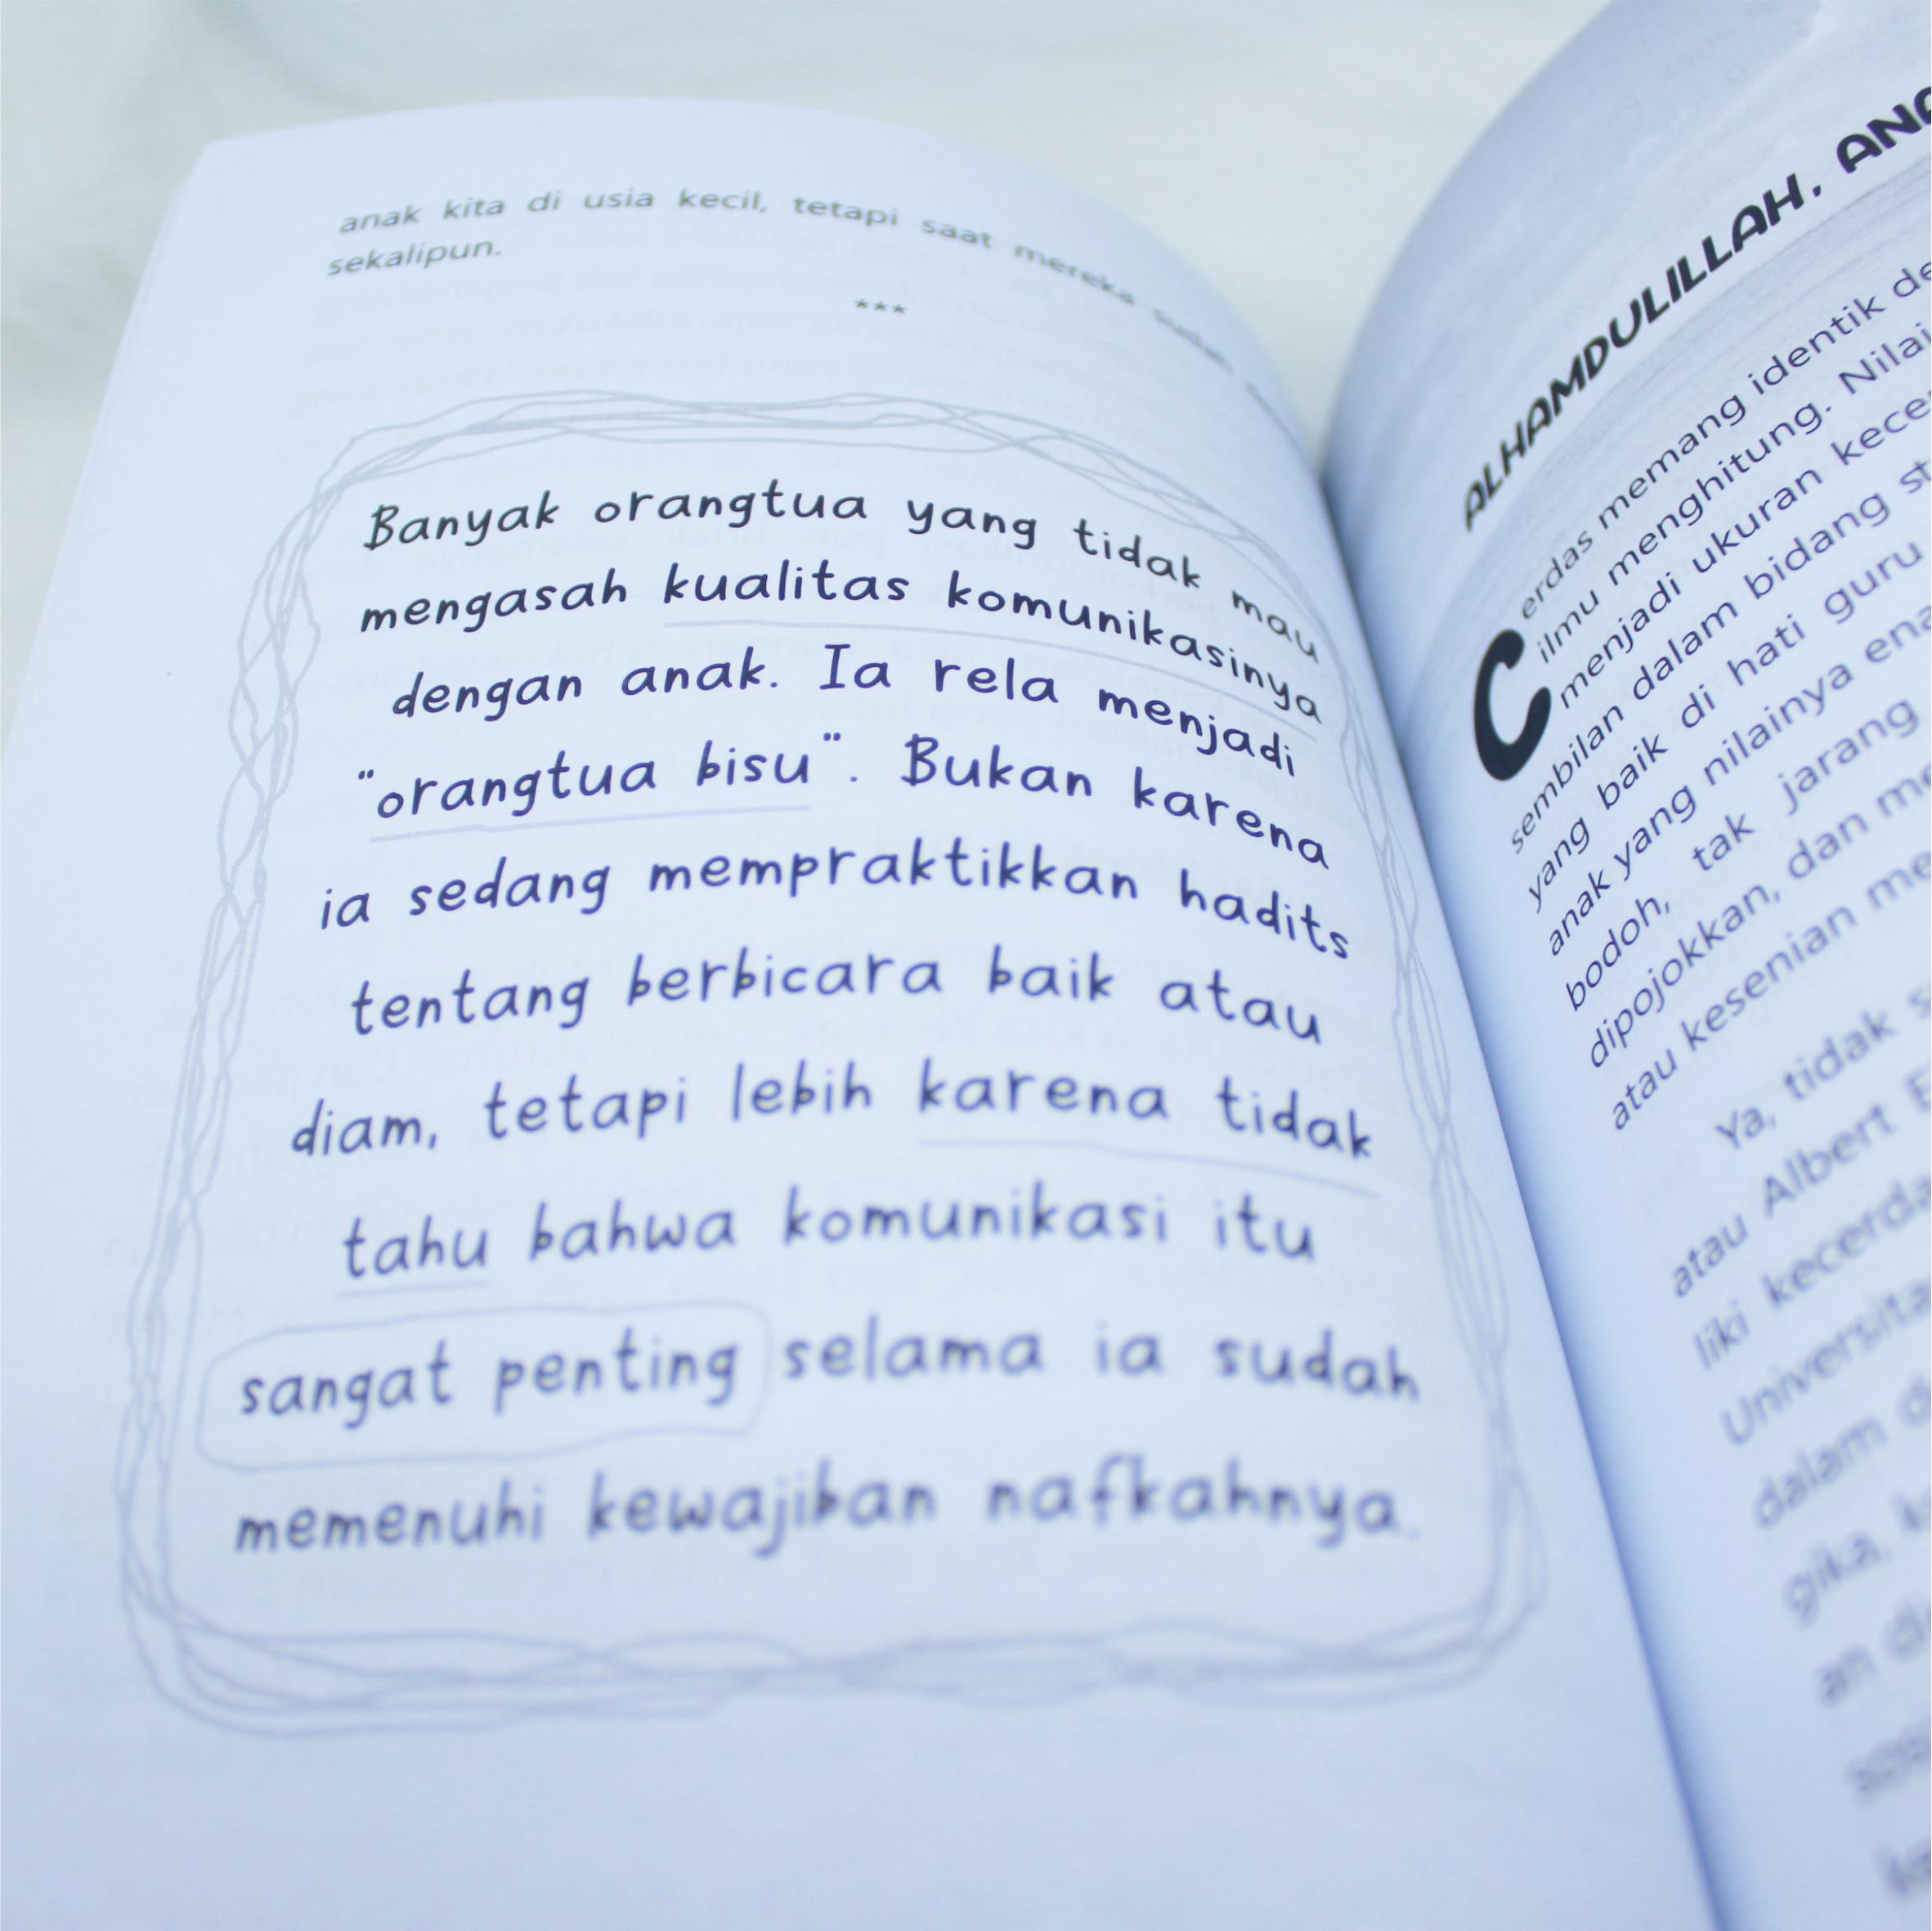 anak kita di usia kecil, tetapi saat mereka sudah
sekalipun.
***
Banyak orangtua yang tidak mau
mengasah kualitas komunikasinya
dengan anak. Ia rela menjadi
"orangtua bisu". Bukan karena
ia sedang mempraktikkan hadits
tentang berbicara baik atau
diam, tetapi lebih karena tidak
tahu bahwa komunikasi itu
sangat penting selama ia sudah
memenuhi kewajiban nafkahnya.
ALHAMDULILLAH,
Cerdas memang identik
ilmu menghitung. Nilai
menjadi ukuran
sembilan dalam bidang
yang baik di hati guru
anak yang nilainya
bodoh, tak jarang
dipojokkan, dan
atau kesenian
Ya, tidak
atau Albert
liki
dalam